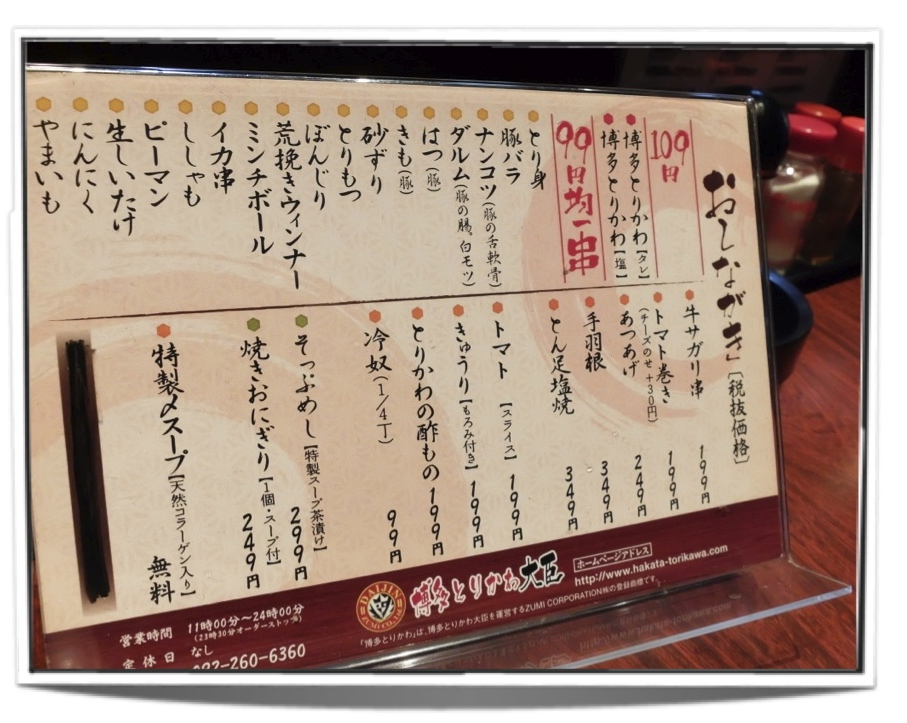 おしながき [税抜価格]
109円
博多とりかわ【タレ】
博多とりかわ【塩】
99円均一串
とり身
豚バラ
ナンコツ(豚の舌軟骨)
ダルム(豚の腸、白モツ)
はつ(豚)
きも(豚)
砂ずり
とりもつ
ぼんじり
荒挽きウィンナー
ミンチボール
イカ串
ししゃも
ピーマン
生しいたけ
にんにく
やまいも
牛サガリ串 199円
トマト巻き 199円
(チーズのせ +30円)
あつあげ 249円
手羽根 349円
とん足塩焼 349円
トマト [スライス] 199円
きゅうり【もろみ付き】 199円
とりかわの酢もの 199円
冷奴(1/4丁) 99円
そっぷめし【特製スープ茶漬け】 299円
焼きおにぎり【1個・スープ付】 249円
特製〆スープ【天然コラーゲン入り】 無料
営業時間 11時00分〜24時00分
(23時30分オーダーストップ)
定休日 なし
092-260-6360
DAIJIN
ZUMI CO.,LTD
博多とりかわ大臣
ホームページアドレス
http://www.hakata-torikawa.com
「博多とりかわ」は、博多とりかわ大臣を運営するZUMI CORPORATION㈱の登録商標です。